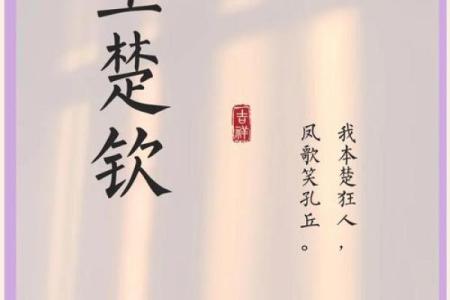 楚钦
吉祥
我本楚狂人，
凤歌笑孔丘。